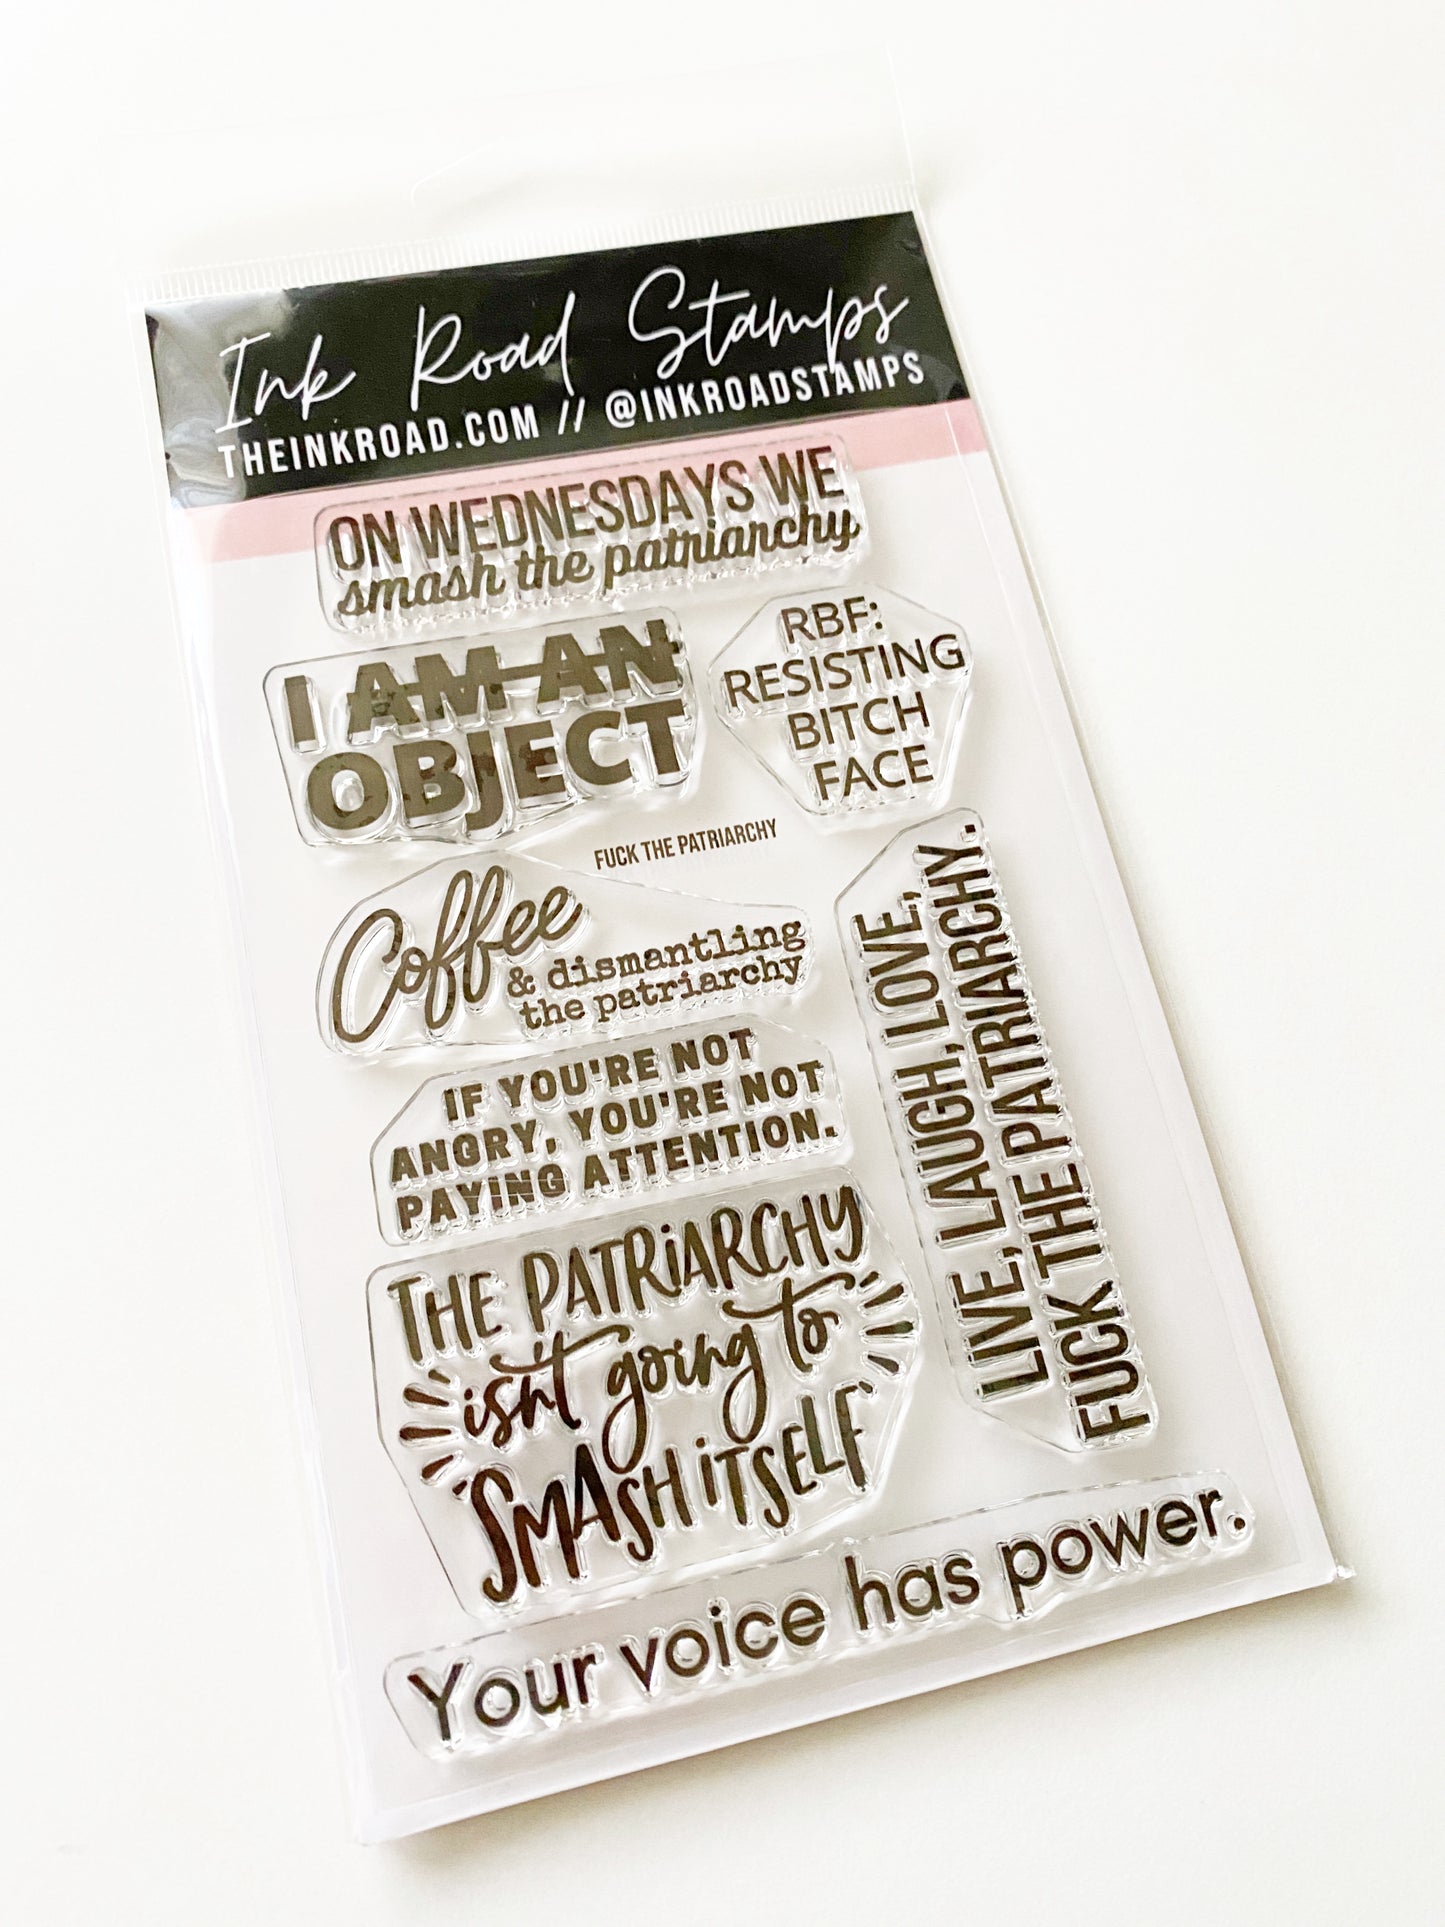 Ink Road Stamps
THEINKROAD.COM // @INKROADSTAMPS
ON WEDNESDAYS WE
smash the patriarchy
I AM AN
OBJECT
RBF:
RESISTING
BITCH
FACE
FUCK THE PATRIARCHY
Coffee
& dismantling
the patriarchy
LIVE, LAUGH, LOVE,
FUCK THE PATRIARCHY.
IF YOU'RE NOT
ANGRY, YOU'RE NOT
PAYING ATTENTION.
THE PATRiARCHY
isn't going to
SMASH iTSELF
Your voice has power.